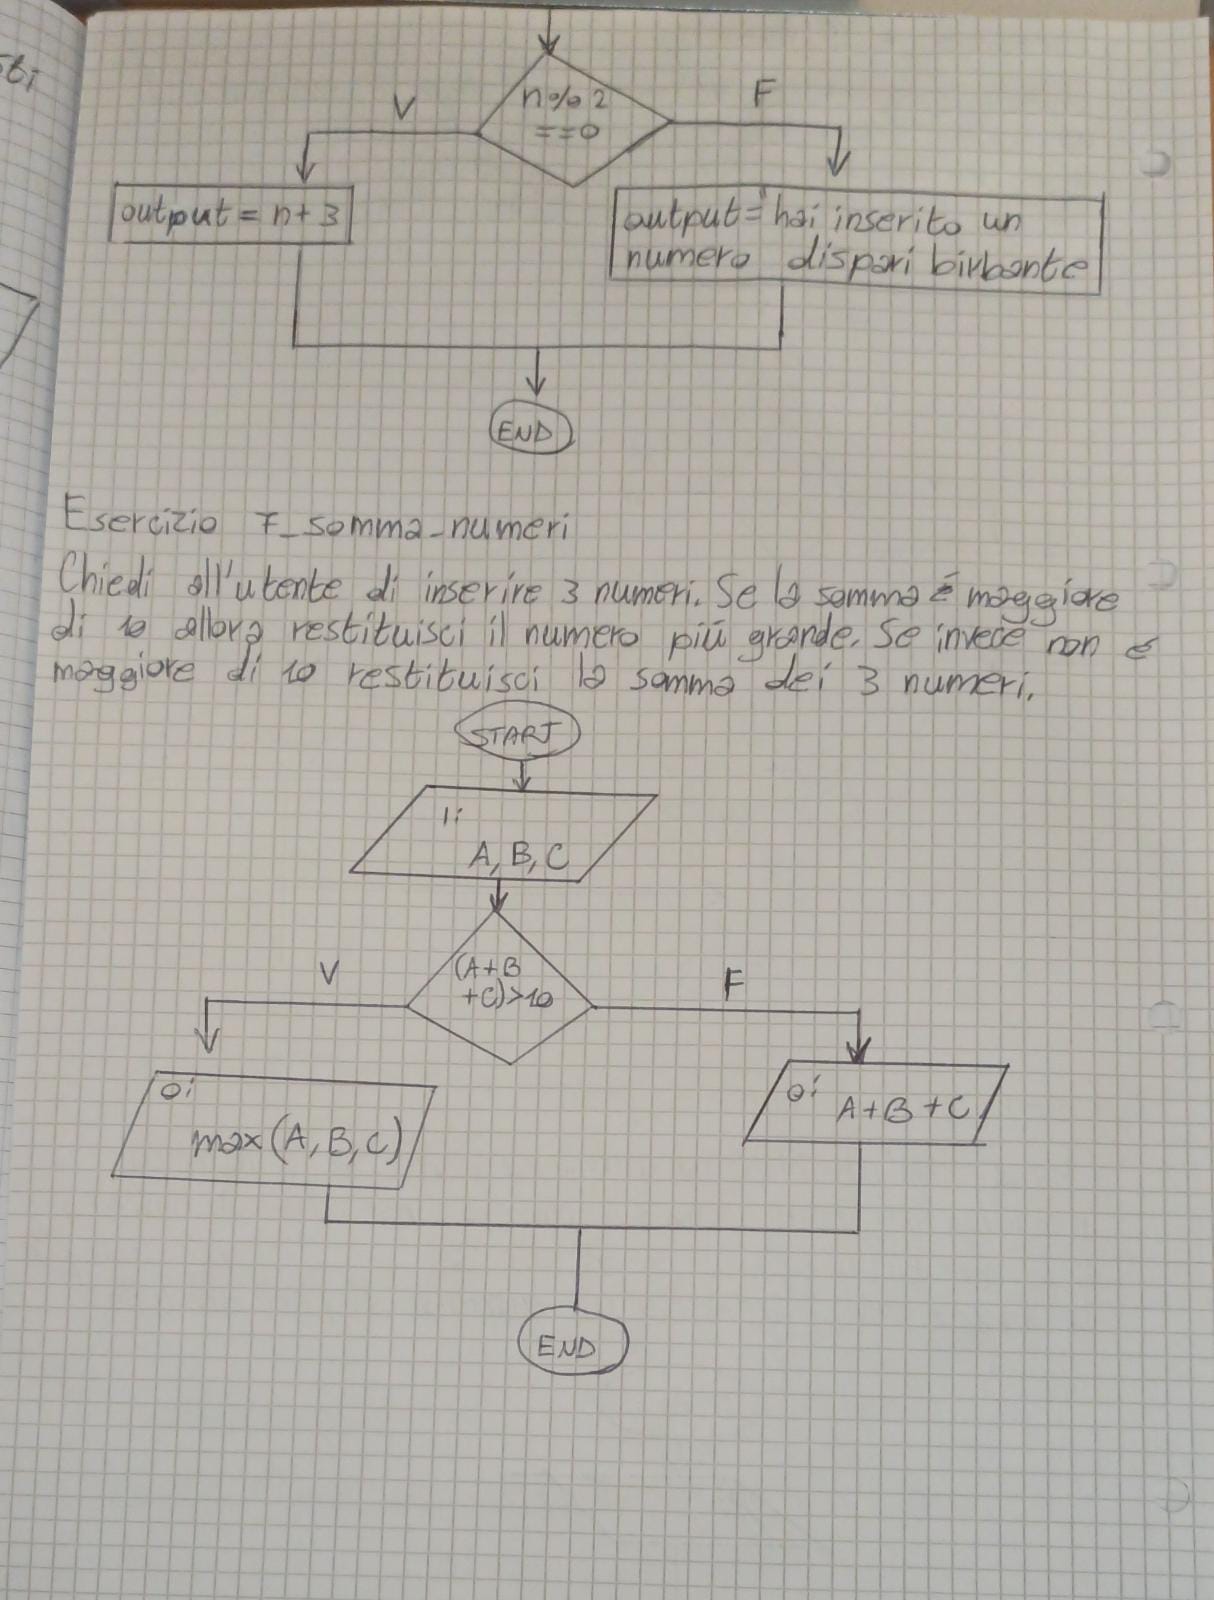 sti
V
n%2
==0
F
output = n+3
output="hai inserito un
numero dispari birbante
END
Esercizio 7_somma_numeri
Chiedi all'utente di inserire 3 numeri. Se la somma é maggiore
di 10 allora restituisci il numero più grande. Se invece non é
maggiore di 10 restituisci la somma dei 3 numeri.
START
I:
A, B, C
V
(A+B
+C)>10
F
O:
max(A, B, C)
O:
A+B+C
END